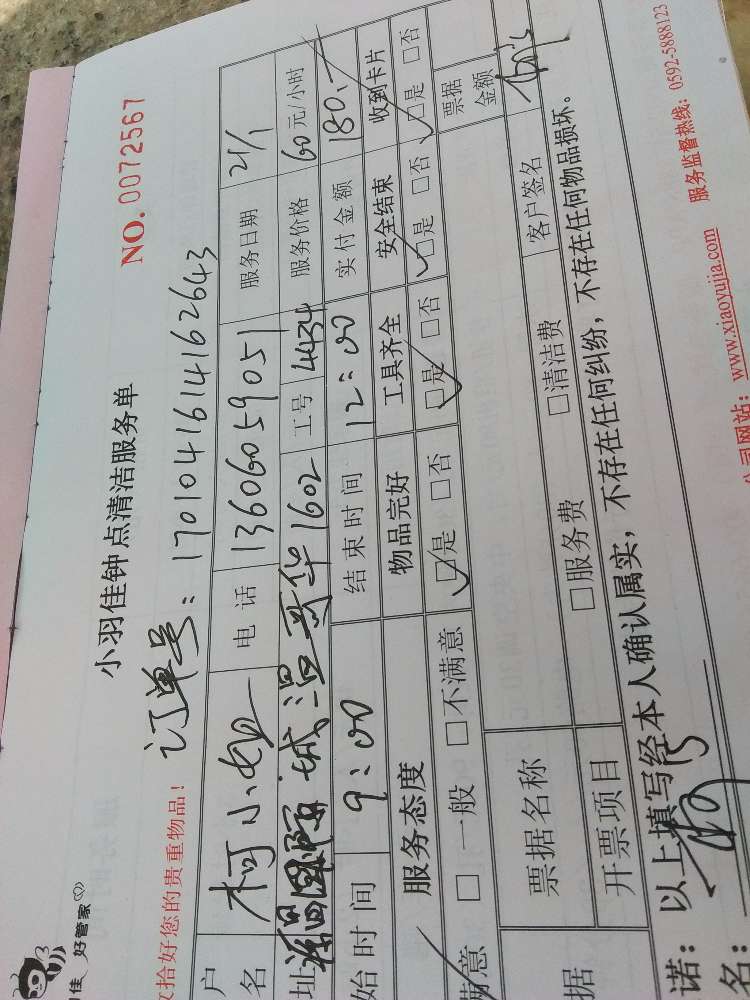 佳 好管家
小羽佳钟点清洁服务单 NO. 0072567
收拾好您的贵重物品! 订单号: 1701041614162643
户名 柯小 电话 13606059051 服务日期 21/1
址 国际 城 华1602 工号 4434 服务价格 60元/小时
始时间 9:00 结束时间 12:00 实付金额 180.-
服务态度 物品完好 工具齐全 安全结束 收到卡片
满意 □一般 □不满意 □是 □否 □是 □否 □是 □否 □是 □否
据 票据名称 票据金额
开票项目 □服务费 □清洁费 客户签名
诺: 以上填写经本人确认属实, 不存在任何纠纷, 不存在任何物品损坏。
名:
公司网站: www.xiaoyujia.com 服务监督热线: 0592-5888123